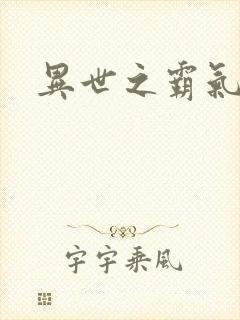 異世之霸氣
宇宇乘風